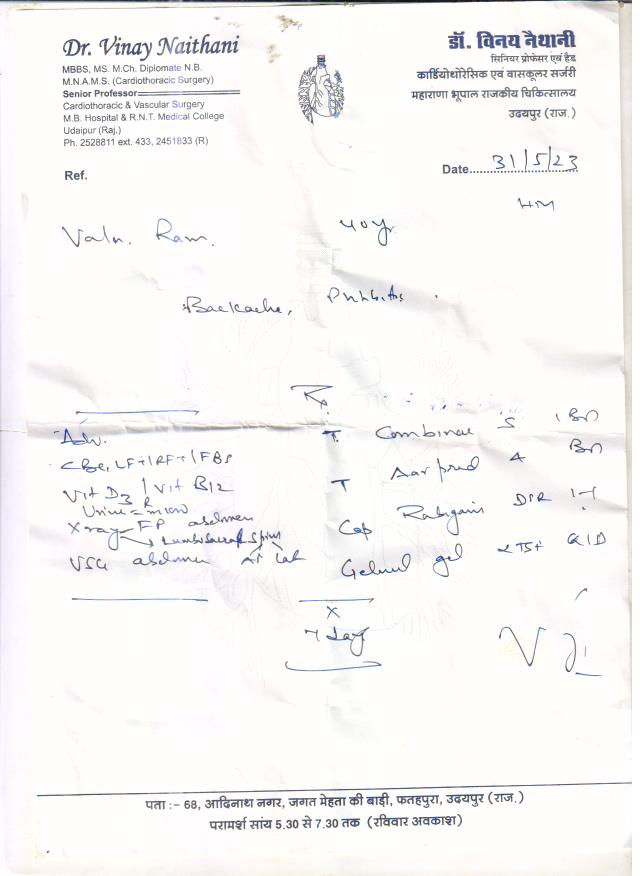 Dr. Vinay Naithani
MBBS, MS. M.Ch. Diplomate N.B.
M.N.A.M.S. (Cardiothoracic Surgery)
Senior Professor
Cardiothoracic & Vascular Surgery
M.B. Hospital & R.N.T. Medical College
Udaipur (Raj.)
Ph. 2528811 ext. 433, 2451833 (R)
डॉ. विनय नैथानी
सिनियर प्रोफेसर एवं हैड
कार्डियोथोरेसिक एवं वासकूलर सर्जरी
महाराणा भूपाल राजकीय चिकित्सालय
उदयपुर (राज.)
Ref.
Date 31/5/23
Ram. 40yr
Backache,
Rx
Adv.
CBC, LFT/RFT/FBS
Vit D3 / Vit B12
Urine R micro
Xray FP abdomen
Lumbosacral Spine
AP Lat
USG abdomen
T. 1 BD
T BD
Cap DSR
gel QID
x
7 day
पता :- 68, आदिनाथ नगर, जगत मेहता की बाड़ी, फतहपुरा, उदयपुर (राज.)
परामर्श सांय 5.30 से 7.30 तक (रविवार अवकाश)